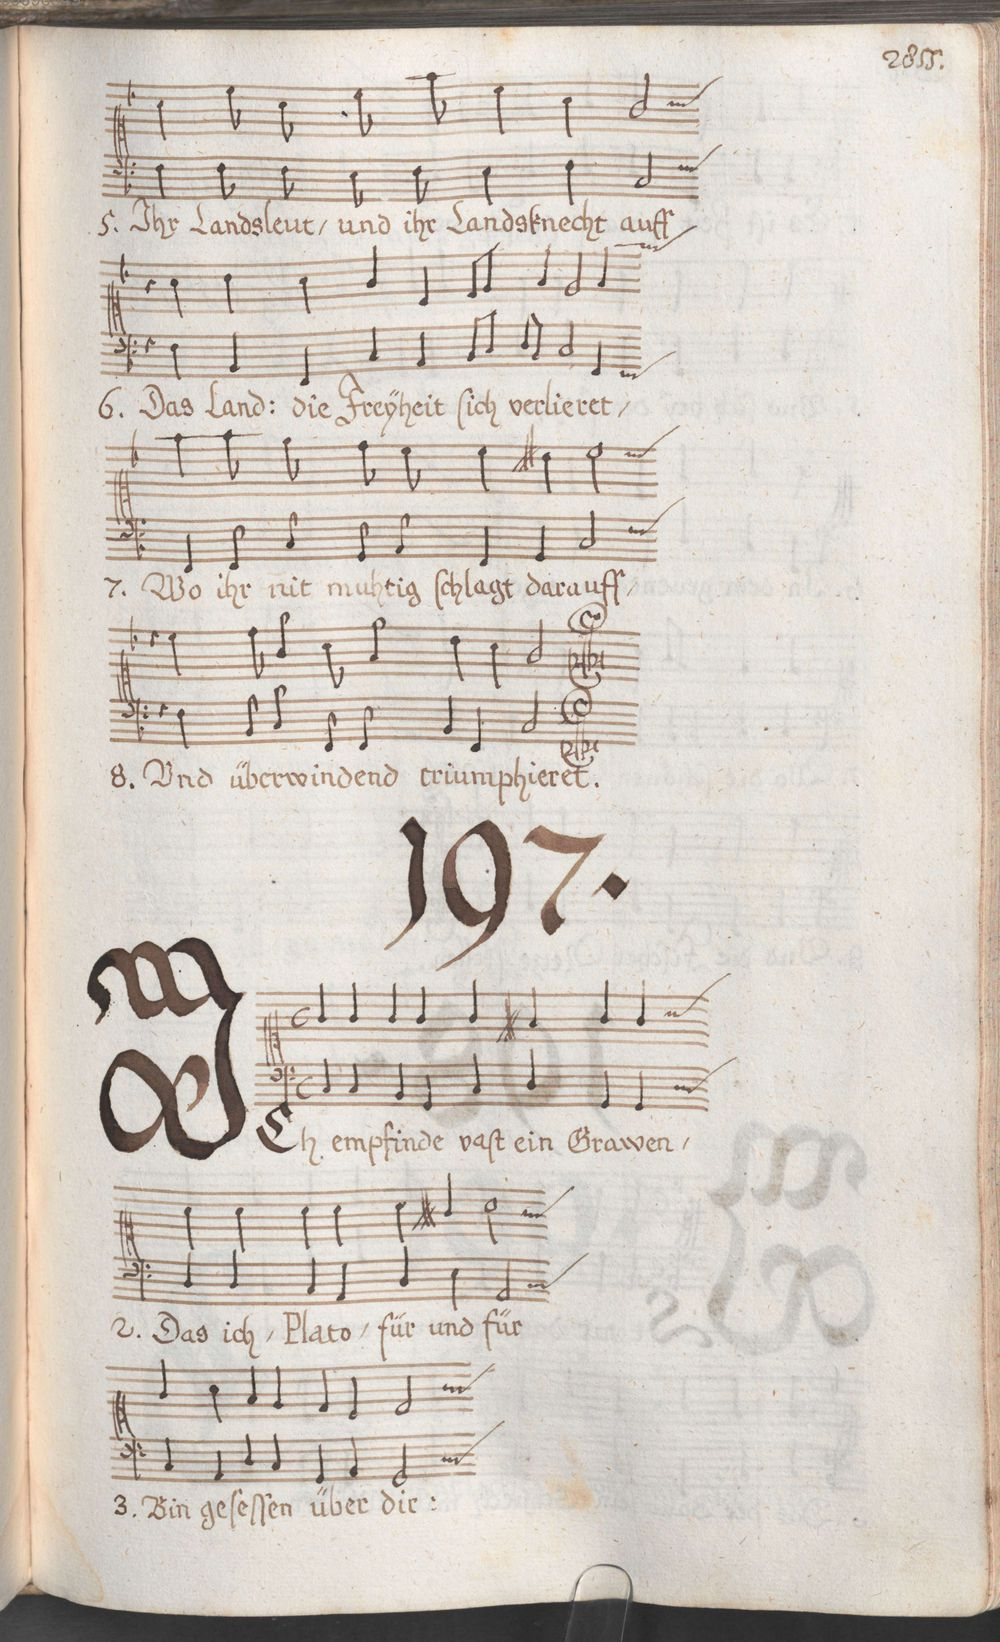 285.
5. Ihr Landsleut, und ihr Landsknecht auff
6. Das Land: die Freÿheit sich verlieret,
7. Wo ihr nit muhtig schlagt darauff,
8. Vnd überwindend triumphieret.
197.
ICh empfinde vast ein Grawen,
2. Das ich, Plato, für und für
3. Bin gesessen über dir: